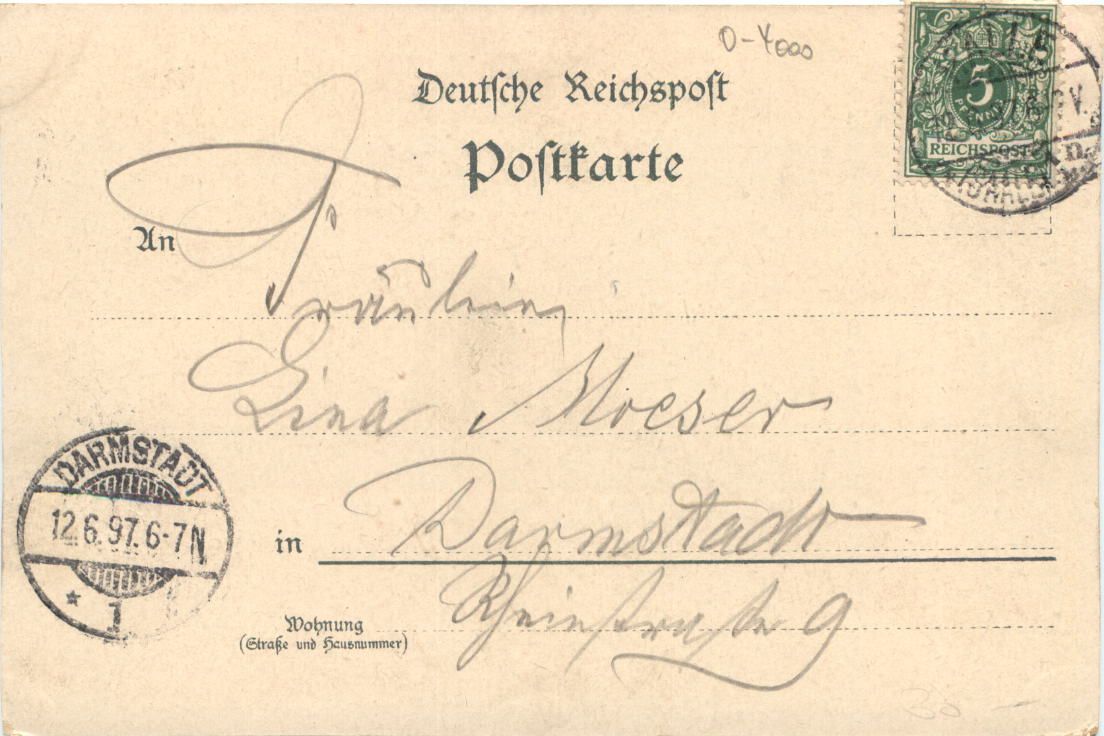 O-4000
Deutsche Reichspost
Postkarte
5
PFENNIG
REICHSPOST
HALLE
An
Fräulein
Lina Moeser
DARMSTADT
12.6.97.6-7N
* 1
in
Darmstadt
Wohnung
(Straße und Hausnummer)
Rheinstraße 9